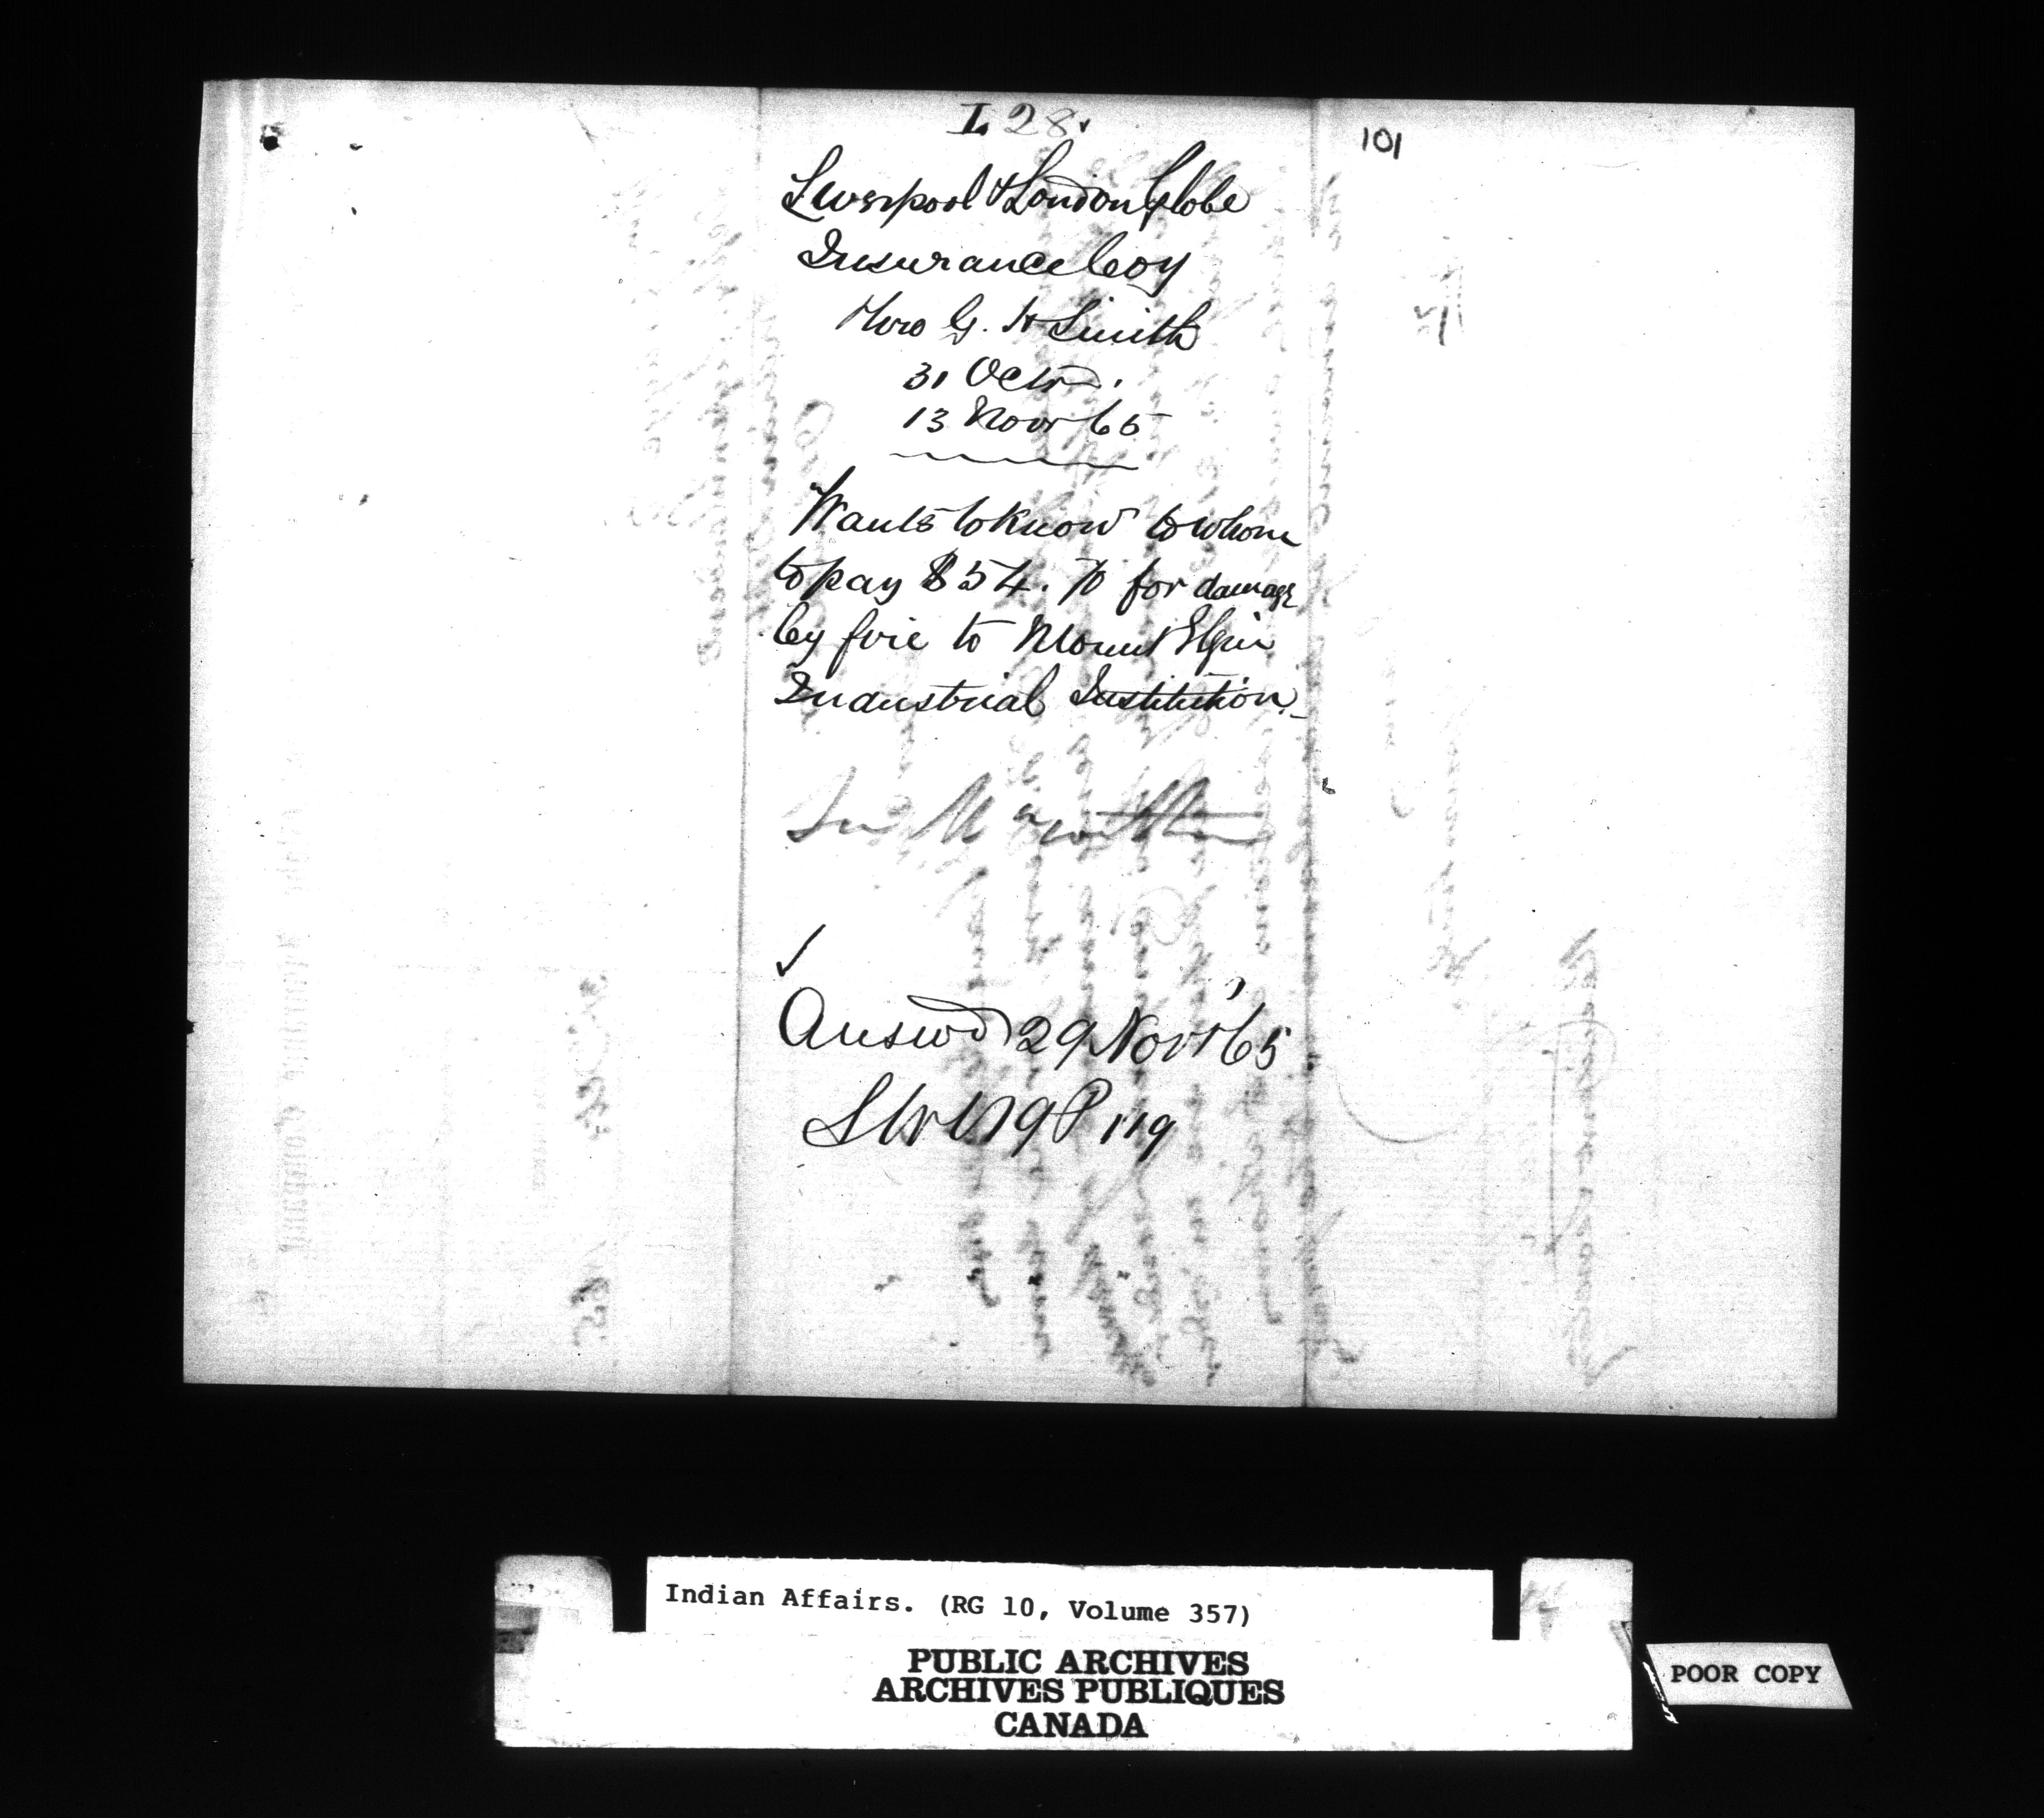 L 28.
101
Liverpool & London Globe
Insurance Coy
Thro G. H Smith
31 Octr.
13 Novr 65
Wants to know to whom
to pay $54.70 for damage
by fire to Mount Elgin
Industrial Institution.
Answd 29 Novr 65
119
Indian Affairs. (RG 10, Volume 357)
PUBLIC ARCHIVES
ARCHIVES PUBLIQUES
CANADA
POOR COPY